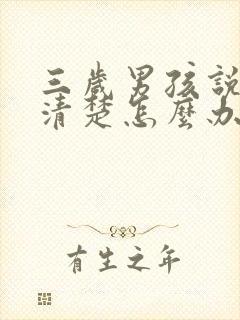 三歲男孩說
清楚怎麼办
有生之年